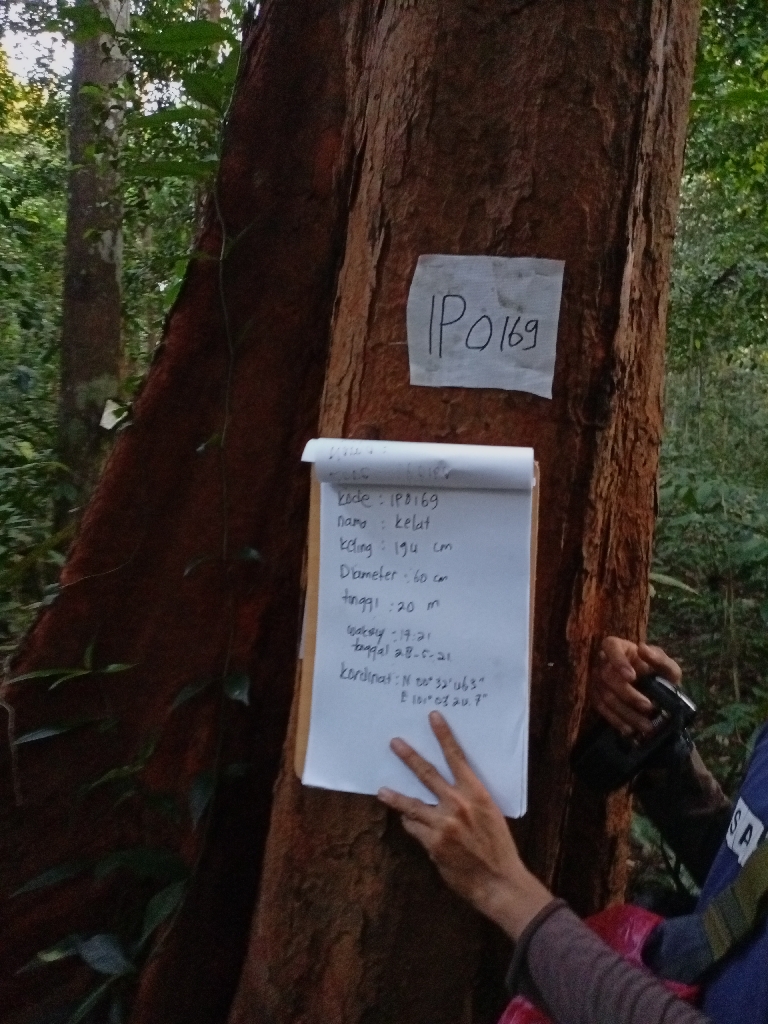 IP0169
kode : IP0169
nama : kelat
Keling : 194 cm
Diameter : 60 cm
tinggi : 20 m
: 17.21
tanggal 28-5-21
kordinat : N 00° 32' 46.3"
E 101° 03 20.7"
SA